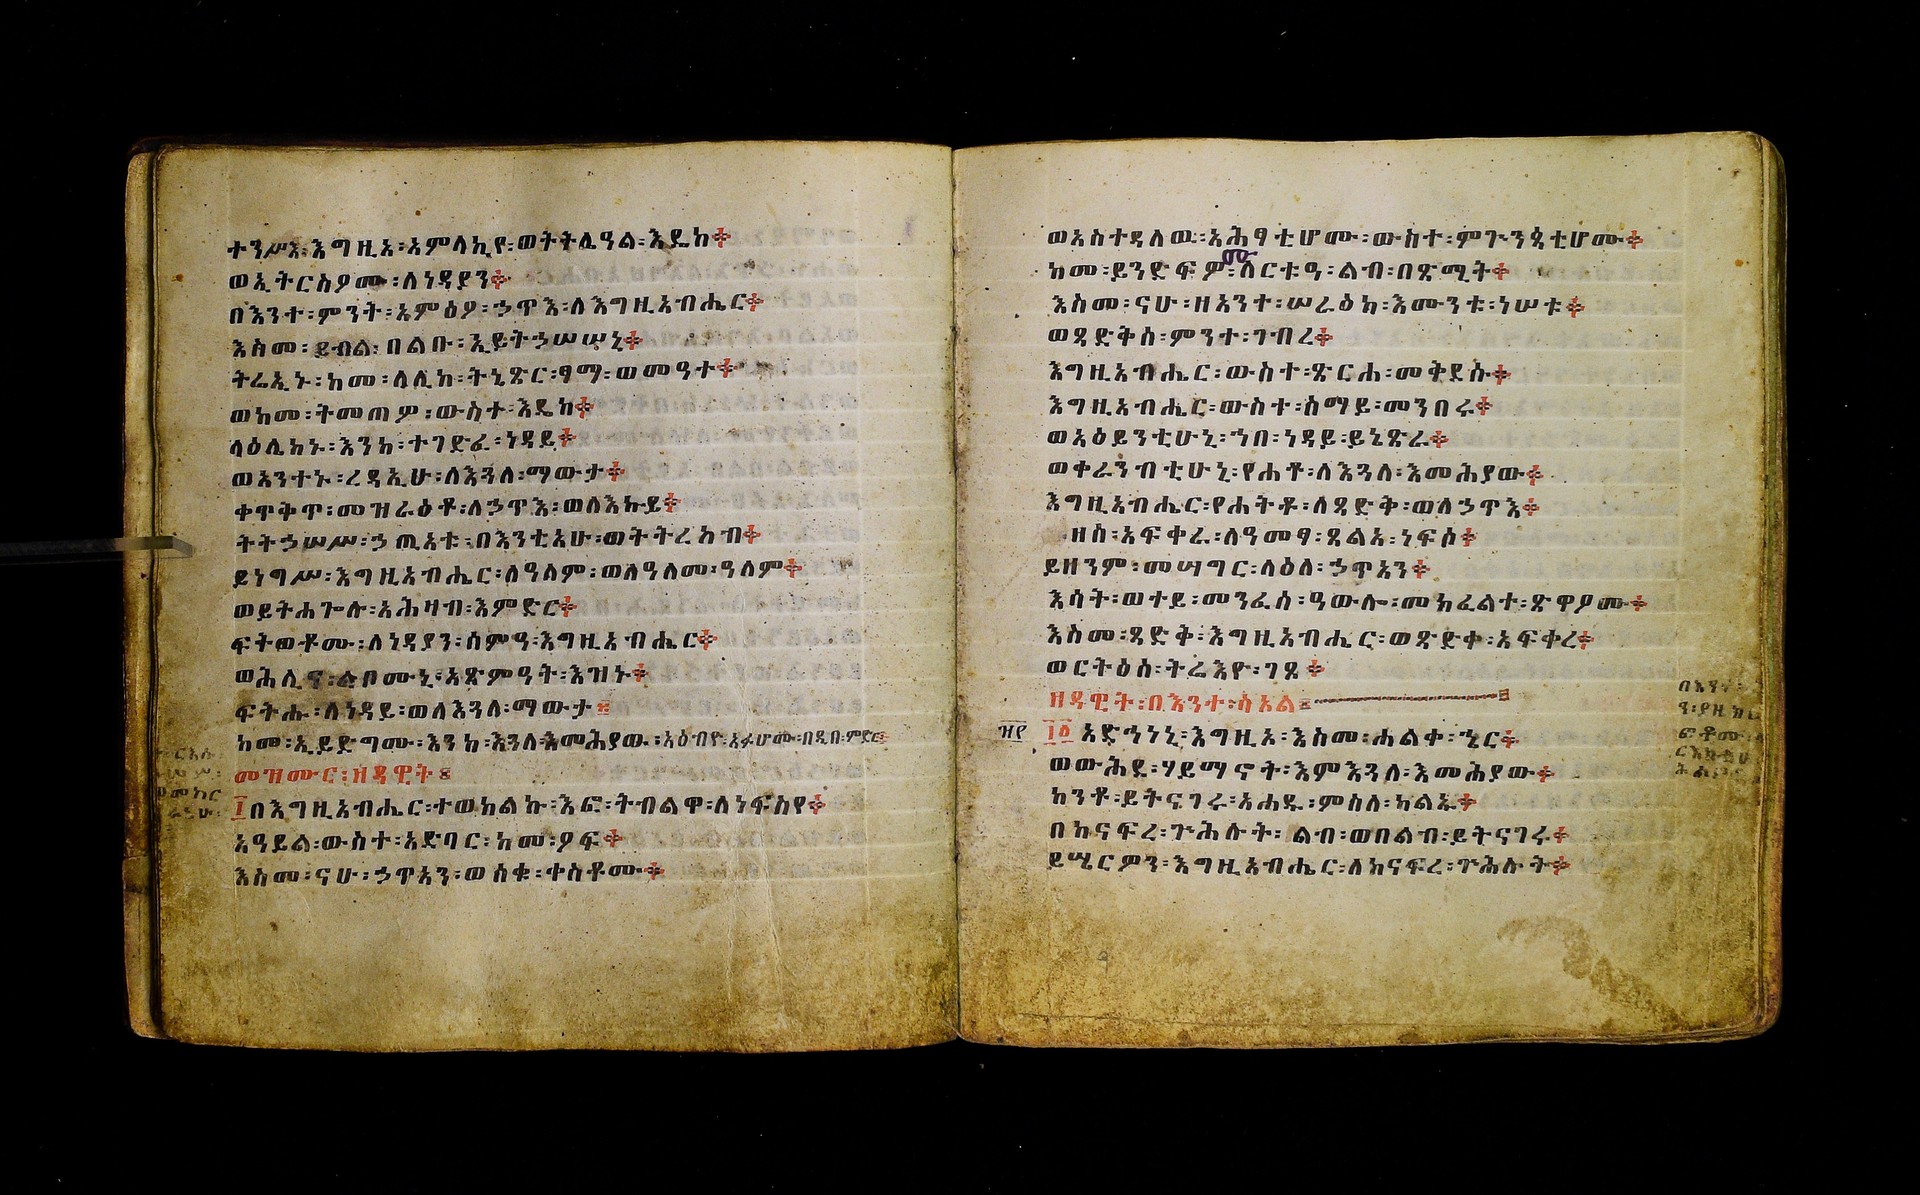 ተንሥእ፡እግዚአ፡አምላኪየ፡ወትትሌዓል፡እዴከ።
ወኢትርስዖሙ፡ለነዳያን።
በእንተ፡ምንት፡አምዕዖ፡ኃጥእ፡ለእግዚአብሔር።
እስመ፡ይብል፡በልቡ፡ኢይትኃሠሠኒ።
ትሬኢኑ፡ከመ፡ለሊከ፡ትኔጽር፡ፃማ፡ወመዓተ።
ወከመ፡ትመጠዎ፡ውስተ፡እዴከ።
ላዕሌከኑ፡እንከ፡ተገድፈ፡ነዳይ።
ወአንተኑ፡ረዳኢሁ፡ለእጓለ፡ማውታ።
ቀጥቅጥ፡መዝራዕቶ፡ለኃጥእ፡ወለእኩይ።
ትትኃሠሥ፡ኃጢአቱ፡በእንቲአሁ፡ወትትረአብ።
ይነግሥ፡እግዚአብሔር፡ለዓለም፡ወለዓለመ፡ዓለም።
ወይትሐጐሉ፡አሕዛብ፡እምድር።
ፍትወቶሙ፡ለነዳያን፡ሰምዓ፡እግዚአብሔር።
ወሕሊና፡ልቦሙኒ፡አጽምዓት፡እዝኑ።
ፍትሑ፡ለነዳይ፡ወለእጓለ፡ማውታ።
ከመ፡ኢይድግሙ፡እንከ፡እጓለ፡እመሕያው፡አዕብዮ፡አፉሆሙ፡በዲበ፡ምድር።
መዝሙር፡ዘዳዊት።
፲በእግዚአብሔር፡ተወከልኩ፡እፎ፡ትብልዋ፡ለነፍስየ።
አዓይል፡ውስተ፡አድባር፡ከመ፡ዖፍ።
እስመ፡ናሁ፡ኃጥአን፡ወሰቁ፡ቀስቶሙ።
ወአስተዳለዉ፡አሕፃቲሆሙ፡ውስተ፡ምጒንጳቲሆሙ።
ከመ፡ይንድፍዎ፡ለርቱዓ፡ልብ፡በጽሚት።
እስመ፡ናሁ፡ዘአንተ፡ሠራዕከ፡እሙንቱ፡ነሠቱ።
ወጻድቅሰ፡ምንተ፡ገብረ።
እግዚአብሔር፡ውስተ፡ጽርሐ፡መቅደሱ።
እግዚአብሔር፡ውስተ፡ሰማይ፡መንበሩ።
ወአዕይንቲሁኒ፡ኀበ፡ነዳይ፡ይኔጽራ።
ወቀራንብቲሁኒ፡የሐቶ፡ለእጓለ፡እመሕያው።
እግዚአብሔር፡የሐትቶ፡ለጻድቅ፡ወለኃጥእ።
ዘሰ፡አፍቀራ፡ለዓመፃ፡ጸልአ፡ነፍሶ።
ይዘንም፡መሣግር፡ላዕለ፡ኃጥአን።
እሳት፡ወተይ፡መንፈሰ፡ዓውሎ፡መክፈልተ፡ጽዋዖሙ።
እስመ፡ጻድቅ፡እግዚአብሔር፡ወጽድቀ፡አፍቀረ።
ወርትዕሰ፡ትሬእዮ፡ገጹ።
ዘዳዊት፡በእንተ፡ሳአል።
፲፩አድኅነኒ፡እግዚአ፡እስመ፡ሐልቀ፡ኄር።
ወውሕደ፡ሃይማኖት፡እምእጓለ፡እመሕያው።
ከንቶ፡ይትናገሩ፡አሐዱ፡ምስለ፡ካልኡ።
በከናፍረ፡ጒሕሉት፡ልብ፡ወበልብ፡ይትናገሩ።
ይሤርዎን፡እግዚአብሔር፡ለከናፍረ፡ጒሕሉት።